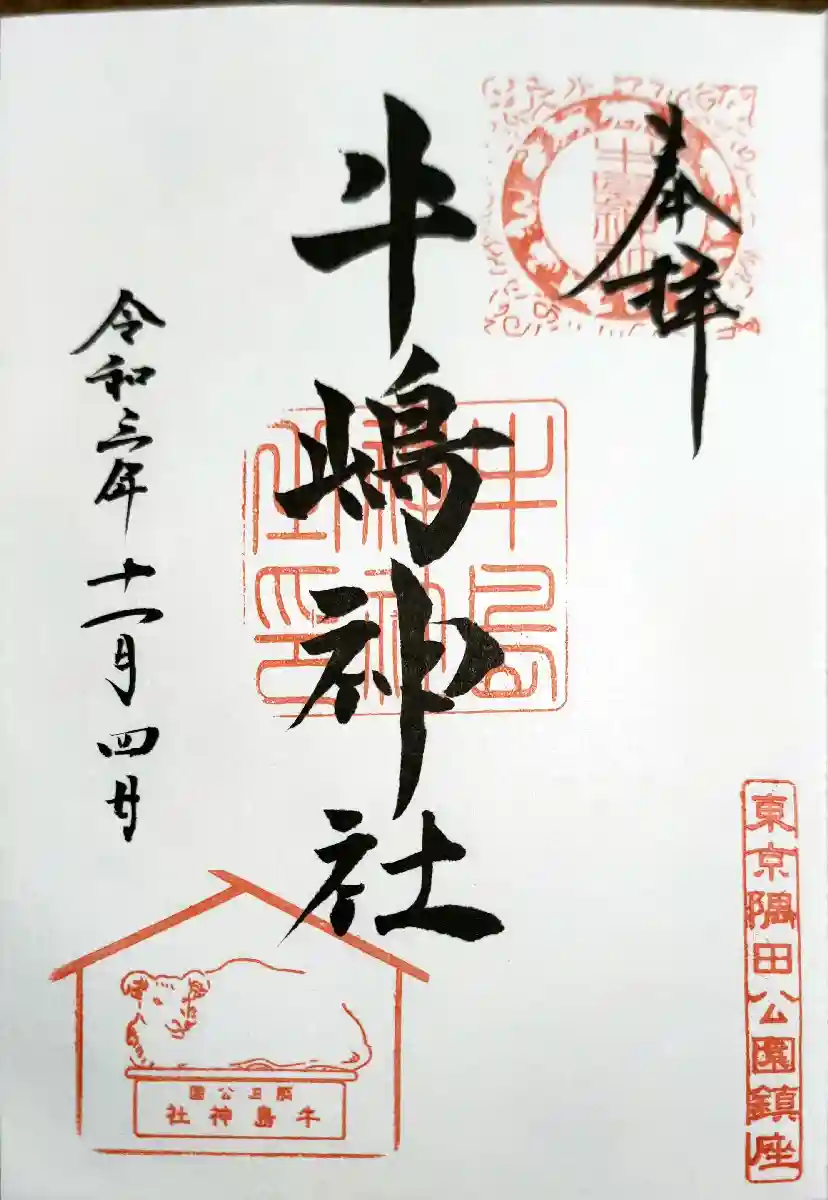 奉拝
牛嶋神社
令和三年十一月四日
牛島
神社
之印
東京隅田公園鎮座
隅田公園
牛島神社